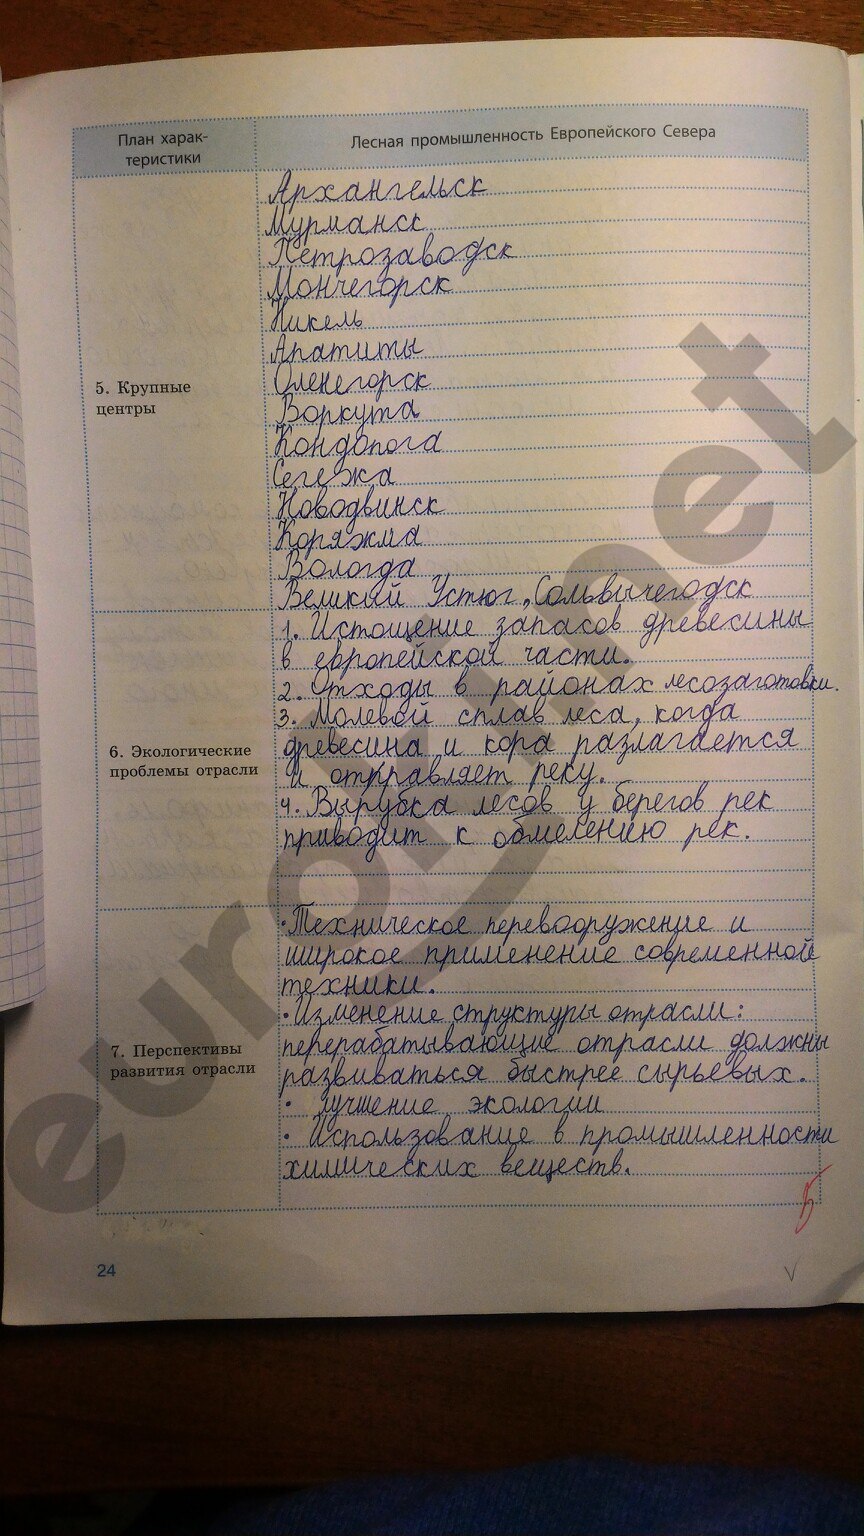 План харак-
теристики
Лесная промышленность Европейского Севера
5. Крупные
центры
Архангельск
Мурманск
Петрозаводск
Мончегорск
Никель
Апатиты
Оленегорск
Воркута
Кондопога
Сегежа
Новодвинск
Коряжма
Вологда
Великий Устюг, Сольвычегодск
6. Экологические
проблемы отрасли
1. Истощение запасов древесины
в европейской части.
2. Отходы в районах лесозаготовки.
3. Молевой сплав леса, когда
древесина и кора разлагается
и отправляет реку.
4. Вырубка лесов у берегов рек
приводит к обмелению рек.
7. Перспективы
развития отрасли
• Техническое перевооружение и
широкое применение современной
техники.
• Изменение структуры отрасли:
перерабатывающие отрасли должны
развиваться быстрее сырьевых.
• лучшение экологии
• Использование в промышленности
химических веществ.
5
24
euroki.net